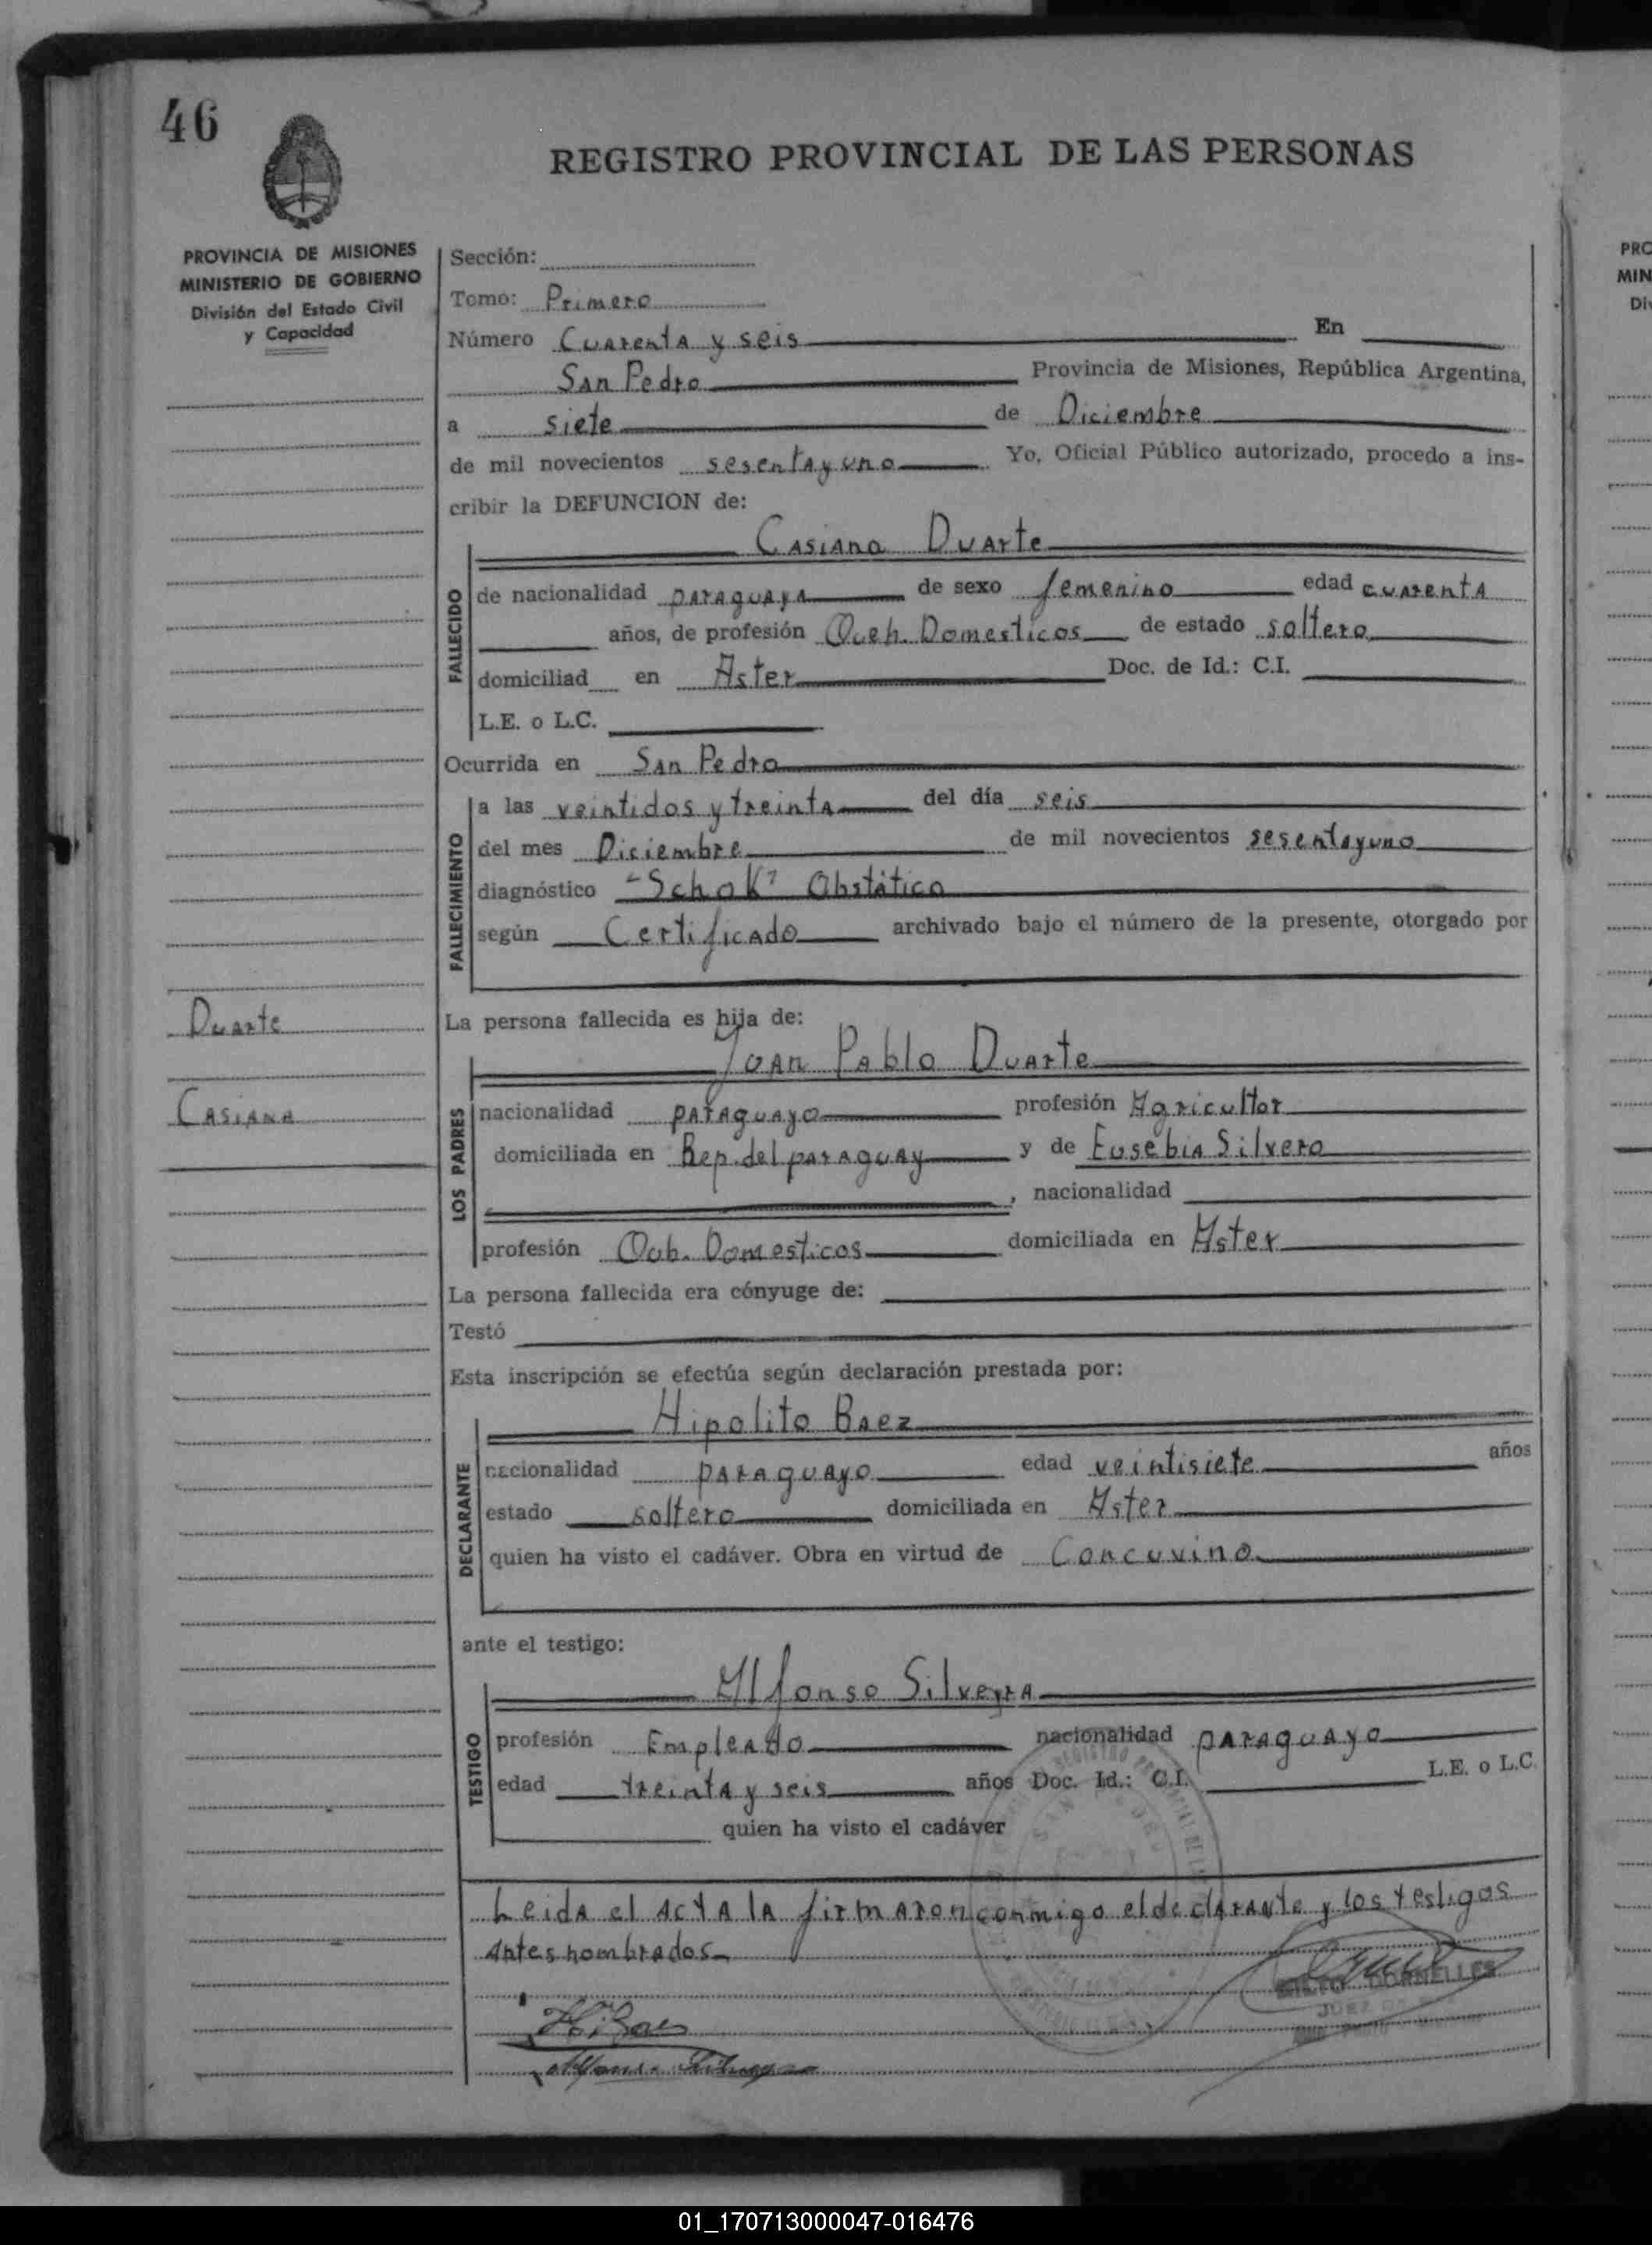 46
REGISTRO PROVINCIAL DE LAS PERSONAS
PROVINCIA DE MISIONES
MINISTERIO DE GOBIERNO
División del Estado Civil
y Capacidad
Sección:
Tomo: Primero
Número Cuarenta y seis En
San Pedro Provincia de Misiones, República Argentina,
a siete de Diciembre
de mil novecientos sesenta y uno Yo, Oficial Público autorizado, procedo a ins-
cribir la DEFUNCION de:
Casiana Duarte
FALLECIDO
de nacionalidad paraguaya de sexo femenino edad cuarenta
años, de profesión Queh. Domesticos de estado soltera
domiciliad en Aster Doc. de Id.: C.I.
L.E. o L.C.
Ocurrida en San Pedro
FALLECIMIENTO
a las veintidos y treinta del día seis
del mes Diciembre de mil novecientos sesenta y uno
diagnóstico "Schok" Obstático
según Certificado archivado bajo el número de la presente, otorgado por
Duarte
Casiana
La persona fallecida es hija de:
Juan Pablo Duarte
LOS PADRES
nacionalidad paraguayo profesión Agricultor
domiciliada en Rep. del paraguay y de Eusebia Silvero
, nacionalidad
profesión Domesticos domiciliada en Aster
La persona fallecida era cónyuge de:
Testó
Esta inscripción se efectúa según declaración prestada por:
Hipolito Baez
DECLARANTE
nacionalidad paraguayo edad veintisiete años
estado soltero domiciliada en Aster
quien ha visto el cadáver. Obra en virtud de Concuvino
ante el testigo:
Alfonso Silveyra
TESTIGO
profesión Empleado nacionalidad paraguayo
edad treinta y seis años Doc. Id.: C.I. L.E. o L.C.
quien ha visto el cadáver
Leida el acta la firmaron conmigo el declarante y los testigos
antes nombrados
DORNELLES
H. Baez
Alfonso Silveyra
PRO
MIN
Div
01_170713000047-016476